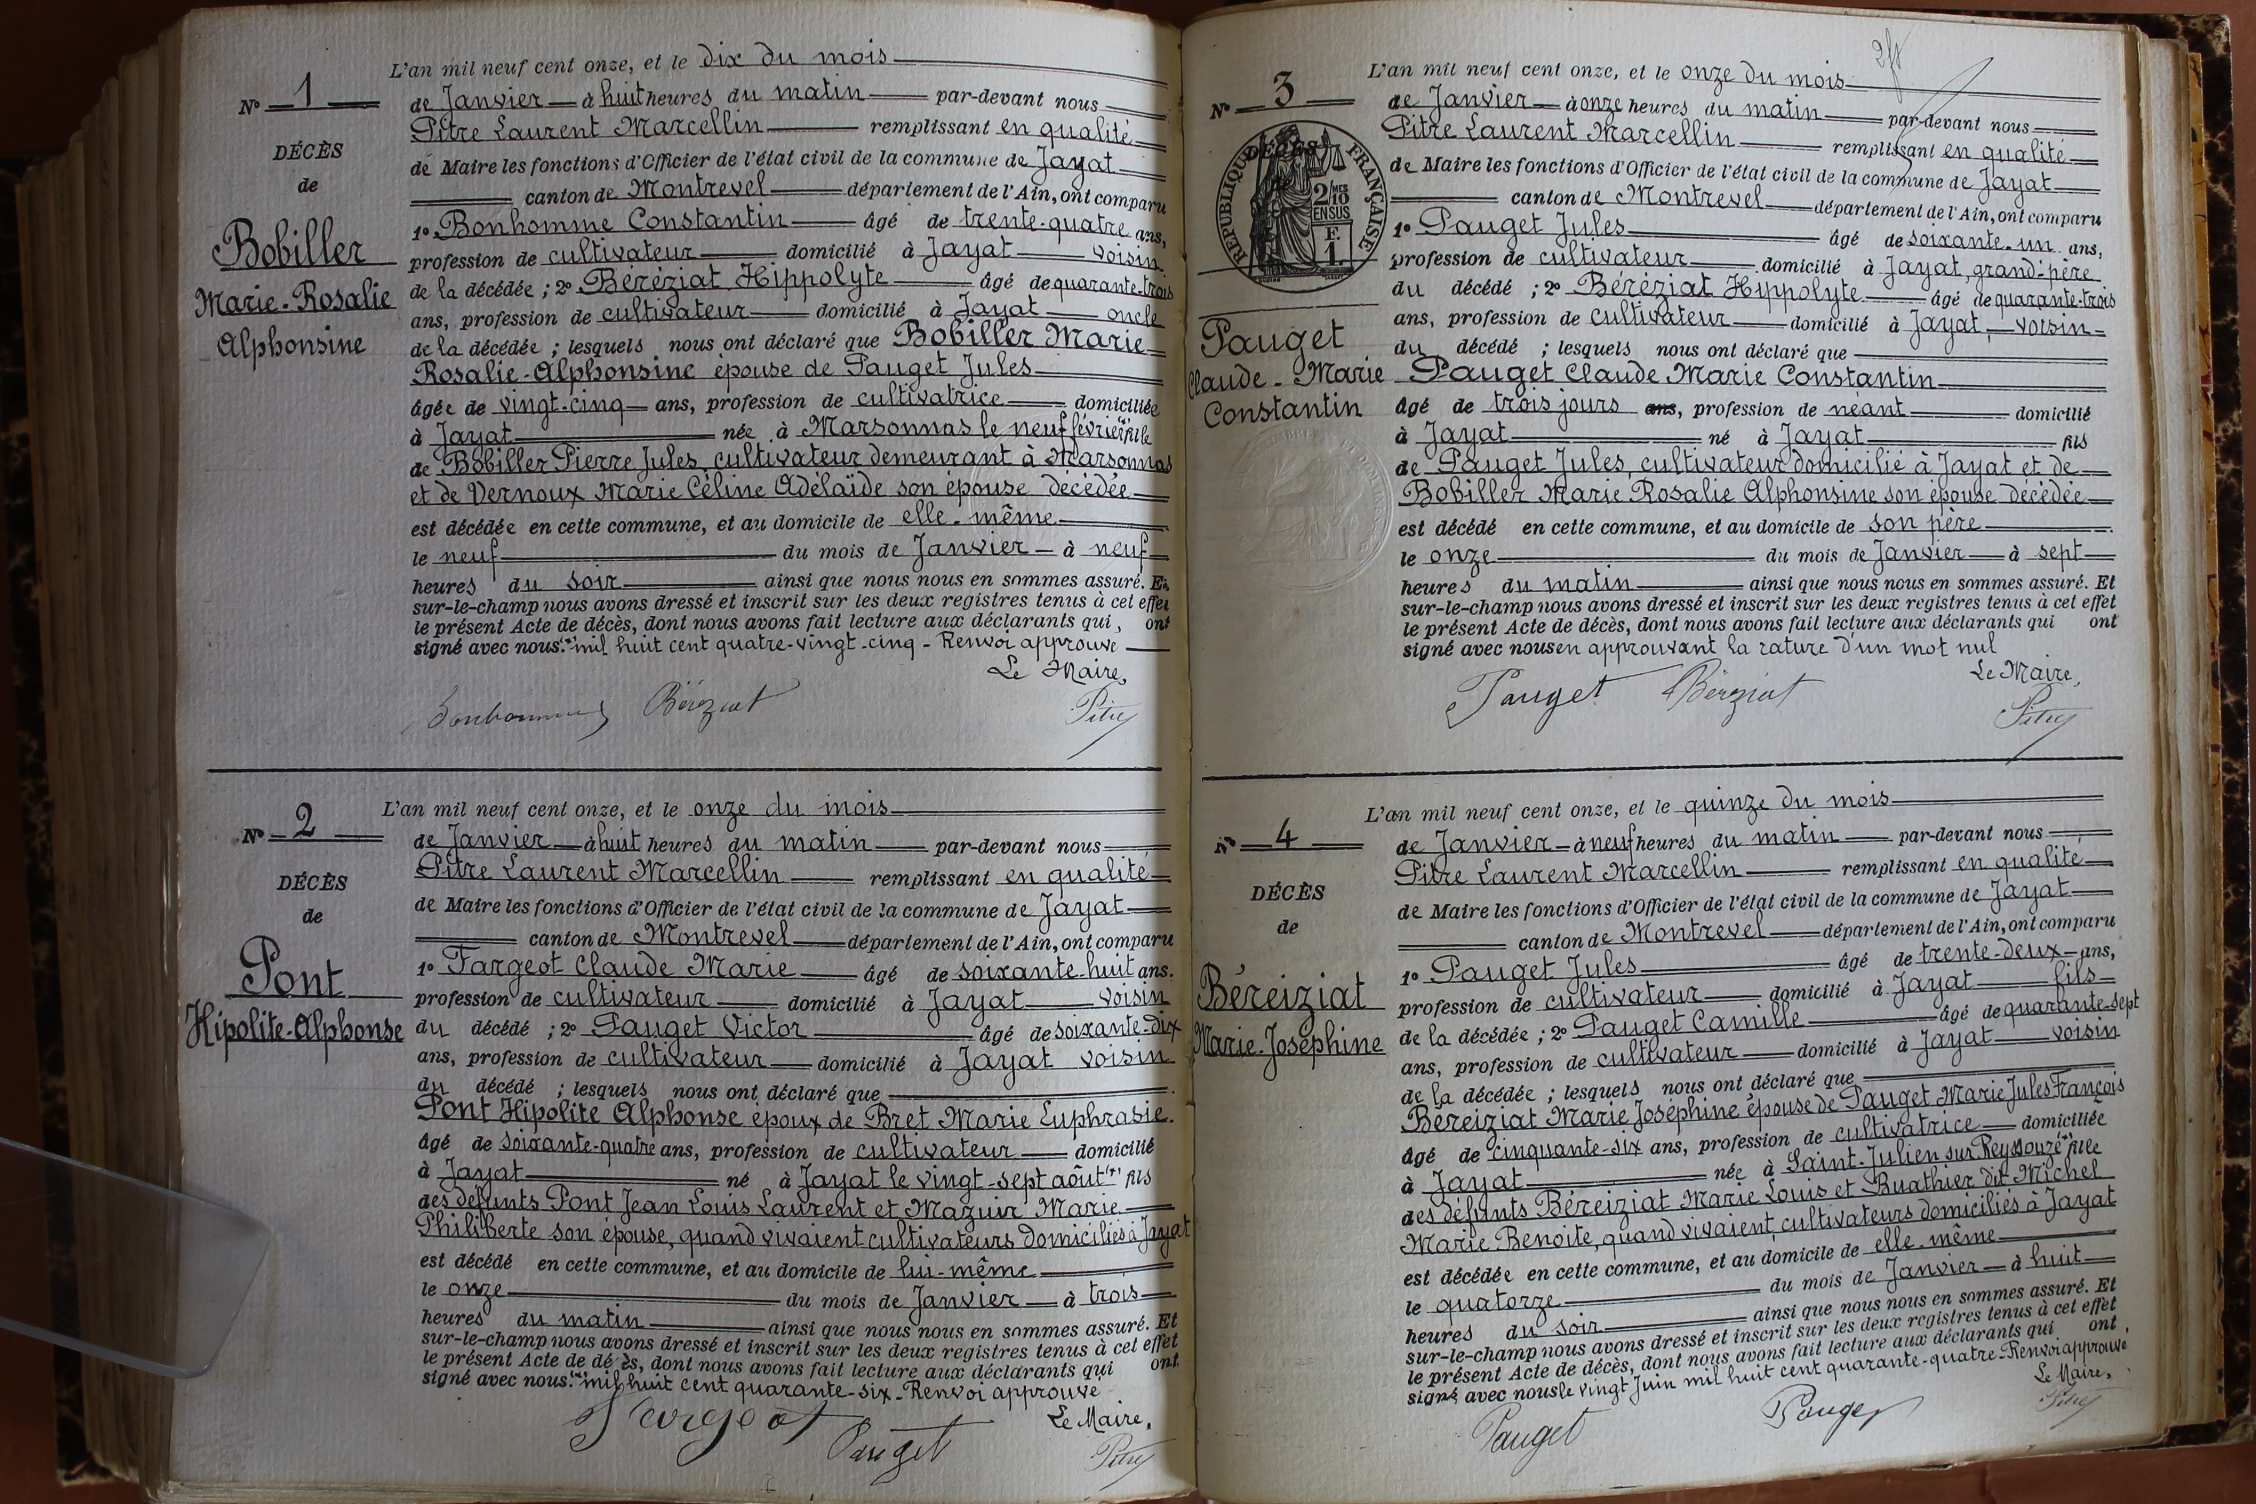 L'an mil neuf cent onze, et le dix du mois
N° 1
de Janvier à huit heures du matin par-devant nous
Pitre Laurent Marcellin remplissant en qualité
DÉCÈS
de Maire les fonctions d'Officier de l'état civil de la commune de Jayat
de
canton de Montrevel département de l'Ain, ont comparu
1° Bonhomme Constantin âgé de trente-quatre ans,
Bobiller
profession de cultivateur domicilié à Jayat voisin
Marie-Rosalie
de la décédée ; 2° Béréziat Hippolyte âgé de quarante-trois
ans, profession de cultivateur domicilié à Jayat oncle
Alphonsine
de la décédée ; lesquels nous ont déclaré que Bobiller Marie
Rosalie-Alphonsine épouse de Pauget Jules
âgée de vingt-cinq ans, profession de cultivatrice domiciliée
à Jayat née à Marsonnas le neuf février fille
de Bobiller Pierre Jules, cultivateur demeurant à Marsonnas
et de Vernoux Marie Céline Adélaïde son épouse décédée
est décédée en cette commune, et au domicile de elle-même
le neuf du mois de Janvier à neuf
heures du soir ainsi que nous nous en sommes assuré. Et
sur-le-champ nous avons dressé et inscrit sur les deux registres tenus à cet effet
le présent Acte de décès, dont nous avons fait lecture aux déclarants qui, ont
signé avec nous. mil huit cent quatre-vingt-cinq - Renvoi approuvé
Le Maire,
Bonhomme Béréziat Pitre
L'an mil neuf cent onze, et le onze du mois
N° 2
de Janvier à huit heures du matin par-devant nous
Pitre Laurent Marcellin remplissant en qualité
DÉCÈS
de Maire les fonctions d'Officier de l'état civil de la commune de Jayat
de
canton de Montrevel département de l'Ain, ont comparu
1° Fargeot Claude Marie âgé de soixante-huit ans.
Pont
profession de cultivateur domicilié à Jayat voisin
Hipolite-Alphonse
du décédé ; 2° Pauget Victor âgé de soixante-dix
ans, profession de cultivateur domicilié à Jayat voisin
du décédé ; lesquels nous ont déclaré que
Pont Hipolite Alphonse époux de Bret Marie Euphrasie.
âgé de soixante-quatre ans, profession de cultivateur domicilié
à Jayat né à Jayat le vingt-sept août (+) fils
des défunts Pont Jean Louis Laurent et Mazuir Marie
Philiberte son épouse, quand vivaient cultivateurs domiciliés à Jayat
est décédé en cette commune, et au domicile de lui-même
le onze du mois de Janvier à trois
heures du matin ainsi que nous nous en sommes assuré. Et
sur-le-champ nous avons dressé et inscrit sur les deux registres tenus à cet effet
le présent Acte de dé ès, dont nous avons fait lecture aux déclarants qui ont
signé avec nous. (+) mil huit cent quarante-six - Renvoi approuvé
Le Maire,
Fargeot Pauget Pitre
L'an mil neuf cent onze, et le onze du mois
N° 3
de Janvier à onze heures du matin par-devant nous
Pitre Laurent Marcellin remplissant en qualité
DÉCÈS
RÉPUBLIQUE FRANÇAISE
2/10 MES
EN SUS
F.
1.
de Maire les fonctions d'Officier de l'état civil de la commune de Jayat
canton de Montrevel département de l'Ain, ont comparu
1° Pauget Jules âgé de soixante-un ans,
profession de cultivateur domicilié à Jayat, grand-père
du décédé ; 2° Béréziat Hippolyte âgé de quarante-trois
ans, profession de cultivateur domicilié à Jayat voisin
Pauget
du décédé ; lesquels nous ont déclaré que
Claude-Marie
Pauget Claude Marie Constantin
Constantin
âgé de trois jours ans, profession de néant domicilié
à Jayat né à Jayat fils
de Pauget Jules, cultivateur domicilié à Jayat et de
Bobiller Marie Rosalie Alphonsine son épouse décédée
est décédé en cette commune, et au domicile de son père
le onze du mois de Janvier à sept
heures du matin ainsi que nous nous en sommes assuré. Et
sur-le-champ nous avons dressé et inscrit sur les deux registres tenus à cet effet
le présent Acte de décès, dont nous avons fait lecture aux déclarants qui ont
signé avec nous en approuvant la rature d'un mot nul
Le Maire,
Pauget Béréziat Pitre
L'an mil neuf cent onze, et le quinze du mois
N° 4
de Janvier à neuf heures du matin par-devant nous
Pitre Laurent Marcellin remplissant en qualité
DÉCÈS
de Maire les fonctions d'Officier de l'état civil de la commune de Jayat
de
canton de Montrevel département de l'Ain, ont comparu
1° Pauget Jules âgé de trente-deux ans,
Béreiziat
profession de cultivateur domicilié à Jayat fils
Marie-Joséphine
de la décédée ; 2° Pauget Camille âgé de quarante-sept
ans, profession de cultivateur domicilié à Jayat voisin
de la décédée ; lesquels nous ont déclaré que
Béreiziat Marie Joséphine, épouse de Pauget Marie Jules François
âgé de cinquante-six ans, profession de cultivatrice domiciliée
à Jayat née à Saint-Julien sur Reyssouze (+) fille
des défunts Béreiziat Marie Louis et Buathier dit Michel
Marie Benoite, quand vivaient, cultivateurs domiciliés à Jayat
est décédée en cette commune, et au domicile de elle-même
le quatorze du mois de Janvier à huit
heures du soir ainsi que nous nous en sommes assuré. Et
sur-le-champ nous avons dressé et inscrit sur les deux registres tenus à cet effet
le présent Acte de décès, dont nous avons fait lecture aux déclarants qui ont
signé avec nous le vingt Juin mil huit cent quarante-quatre - Renvoi approuvé
Le Maire,
Pauget Pauget Pitre